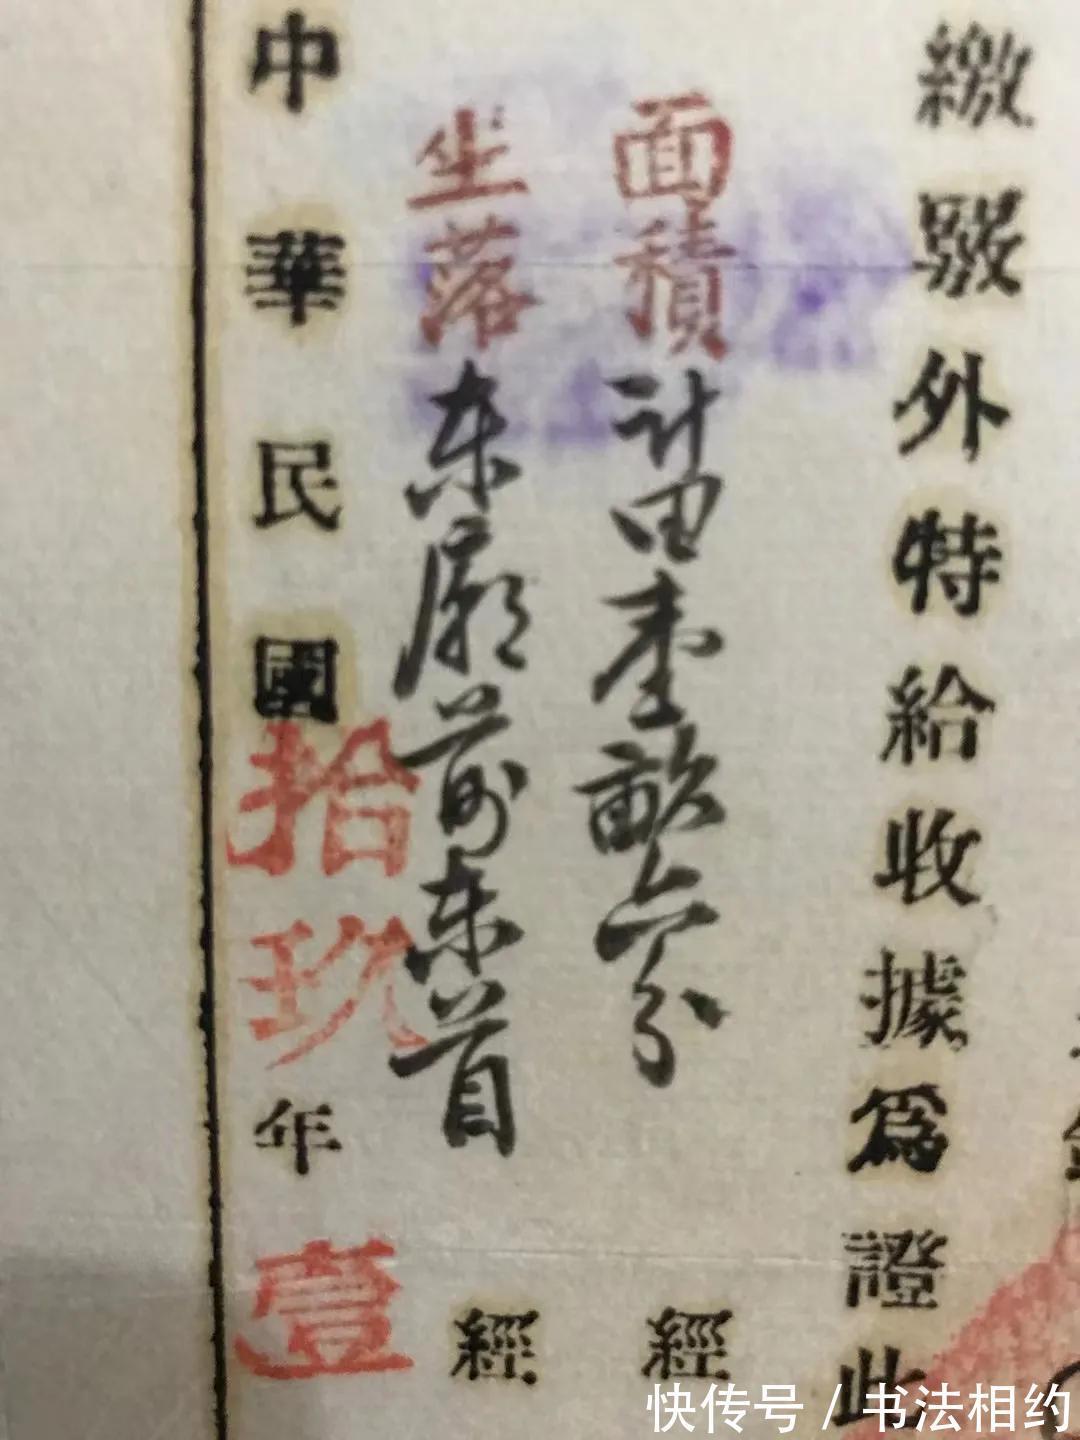 繳驗外特給收據爲證此
面積計田壹畝六分
經
坐落东廟前东首
經
中華民國拾玖年壹
快传号 / 书法相约